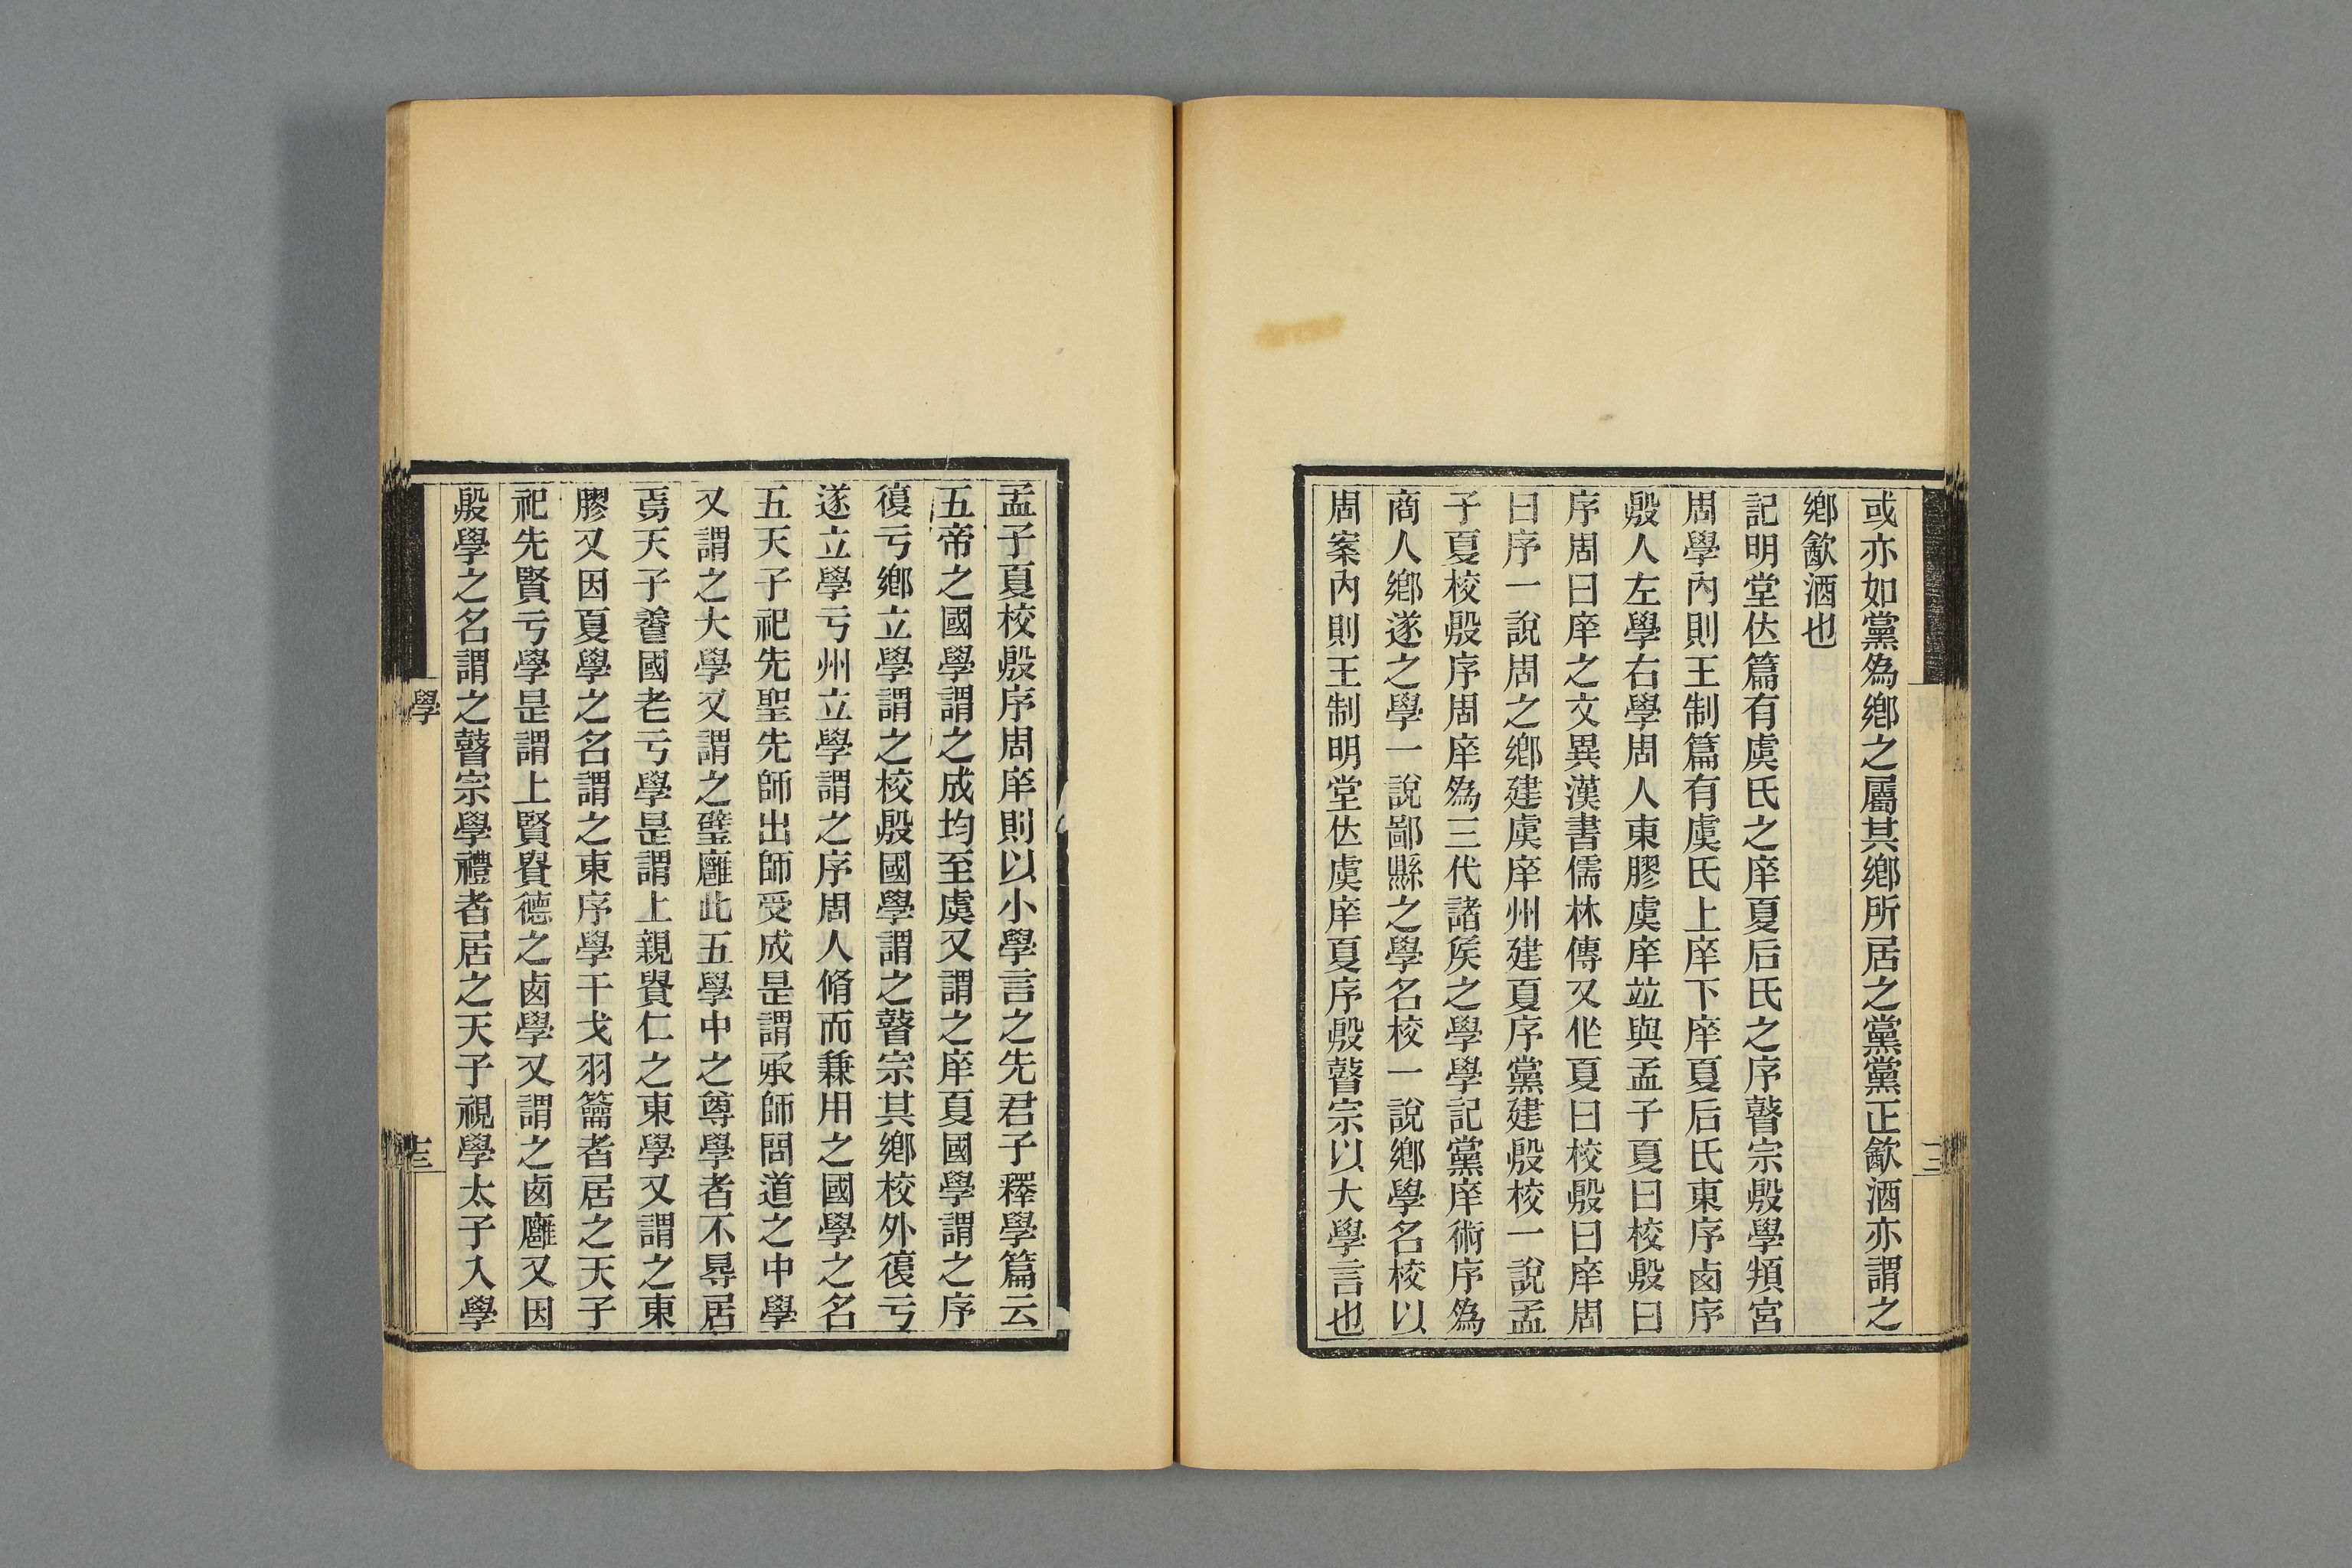 或亦如黨爲鄉之屬其鄉所居之黨黨正㱃酒亦謂之
鄉㱃酒也
記明堂位篇有虞氏之庠夏后氏之序瞽宗殷學頖宮
周學內則王制篇有虞氏上庠下庠夏后氏東序鹵序
殷人左學右學周人東膠虞庠竝與孟子夏曰校殷曰
序周曰庠之文異漢書儒林傳又作夏曰校殷曰庠周
曰序一說周之鄉建虞庠州建夏序黨建殷校一說孟
子夏校殷序周庠爲三代諸矦之學學記黨庠術序爲
商人鄉遂之學一說鄙縣之學名校一說鄉學名校以
周案內則王制明堂位虞庠夏序殷瞽宗以大學言也
孟子夏校殷序周庠則以小學言之先君子釋學篇云
五帝之國學謂之成均至虞又謂之庠夏國學謂之序
復亏鄉立學謂之校殷國學謂之瞽宗其鄉校外復亏
遂立學亏州立學謂之序周人脩而兼用之國學之名
五天子祀先聖先師出師受成是謂承師問道之中學
又謂之大學又謂之璧廱此五學中之尊學者不㝵居
焉天子養國老亏學是謂上親貴仁之東學又謂之東
膠又因夏學之名謂之東序學干戈羽籥者居之天子
祀先賢亏學是謂上賢貴德之鹵學又謂之鹵廱又因
殷學之名謂之瞽宗學禮者居之天子視學太子入學
學